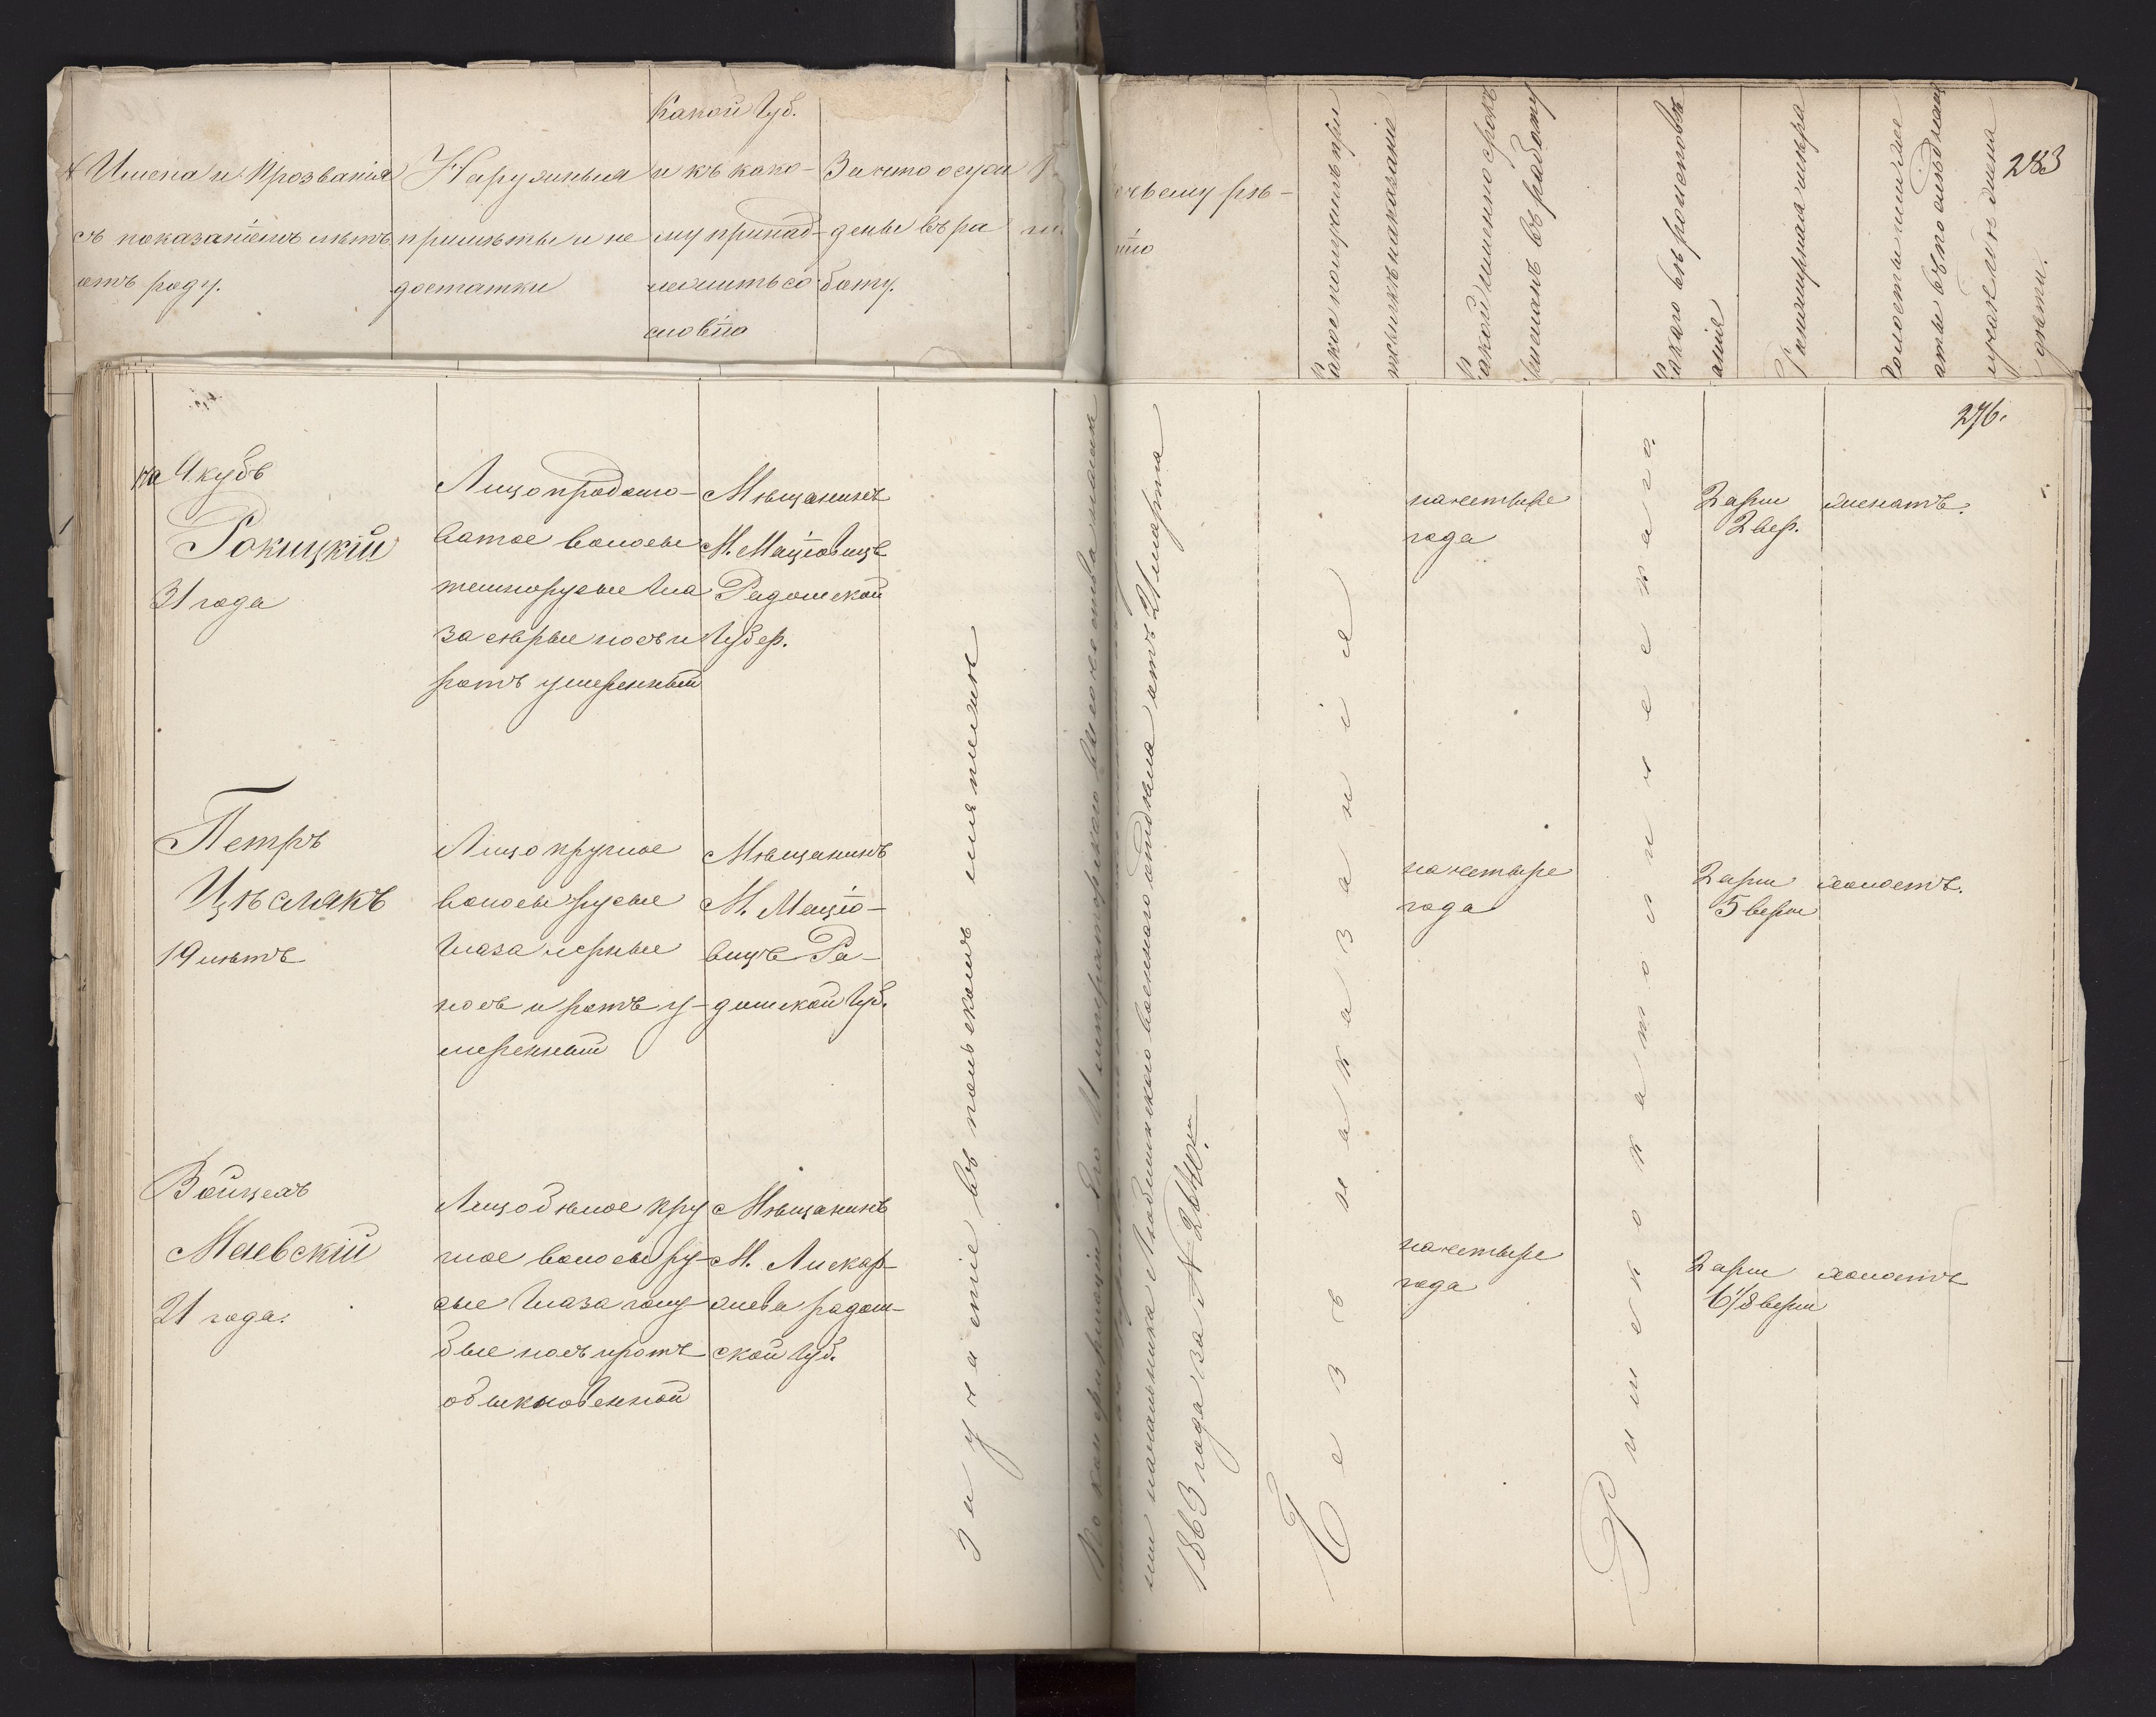 Имена и Прозванія
съ показаніемъ лѣтъ
отъ роду.
Наружныя
примѣты и не
достатки
Какой Губ.
и къ како-
му принад-
лежитъ со
словію
За что осуж
дены въ ра
боту.
чьему рѣ-
нію
Какое получилъ при
тжкихъ наказаніе
Какой именно срокъ
въ работу
Какого вѣроисповѣд
анія
Холостыли или же
283
276.
Якубъ
Рокицкій
31 года
Лицо продолго-
ватое волосы
темнорусые Гла
за сѣрые носъ и
ротъ умеренный
Мѣщанинъ
М. Маціовицъ
Радомской
Губер.
на четыре
года
2 арш
2 вер.
женатъ.
Петръ
Цѣслякъ
19 лѣтъ
Лицо круглое
волосы русые
Глаза черные
носъ и ротъ у-
меренный
Мѣщанинъ
М. Маціо-
вицъ Ра-
домской Губ.
на четыре
года
2 арш
5 верш
холостъ.
Войцехъ
Маевскій
21 года.
Лицо бѣлое кру
глое волосы ру-
сые Глаза голу
бые носъ и ротъ
обыкновенной
Мѣщанинъ
М. Ласкар-
жева радом-
ской Губ.
на четыре
года
2 арш
6 1/8 верш
холостъ
За участіе въ польскомъ мятежѣ
По конфирмаціи Его Императорскаго Высочества
начальника Люблинскаго военнаго отдѣла отъ 21 марта
1863 года за № 264 ю.
Безъ наказанія
Римскокатолическаго.